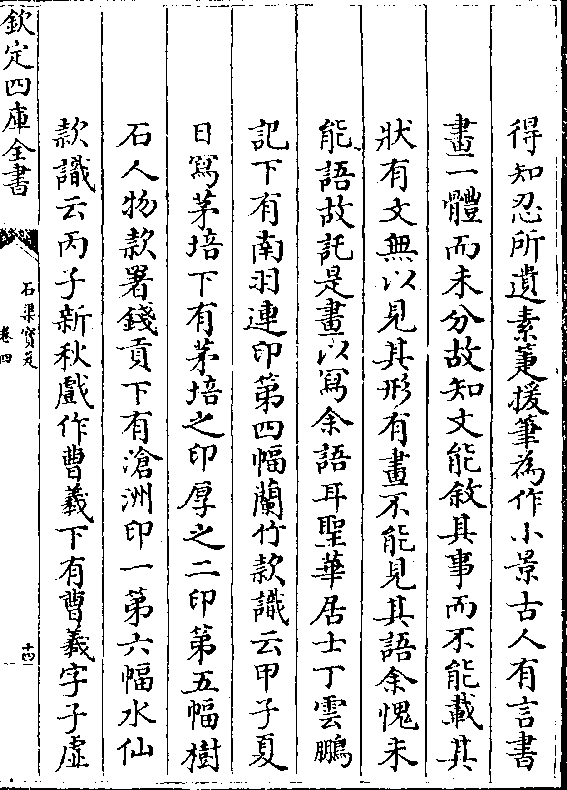 得知忍所遺素箑援筆為作小景古人有言書
畫一體而未分故知文能敘其事而不能載其
狀有文無以見其形有畫不能見其語余愧未
能語故託是畫以寫余語耳聖華居士丁雲鵬
記下有南羽連印第四幅蘭竹款識云甲子夏
日寫茅培下有茅培之印厚之二印第五幅樹
石人物款署錢貢下有滄洲印一第六幅水仙
款識云丙子新秋戲作曹羲下有曹羲字子虛
欽定四庫全書
石渠寶笈
卷四
十四